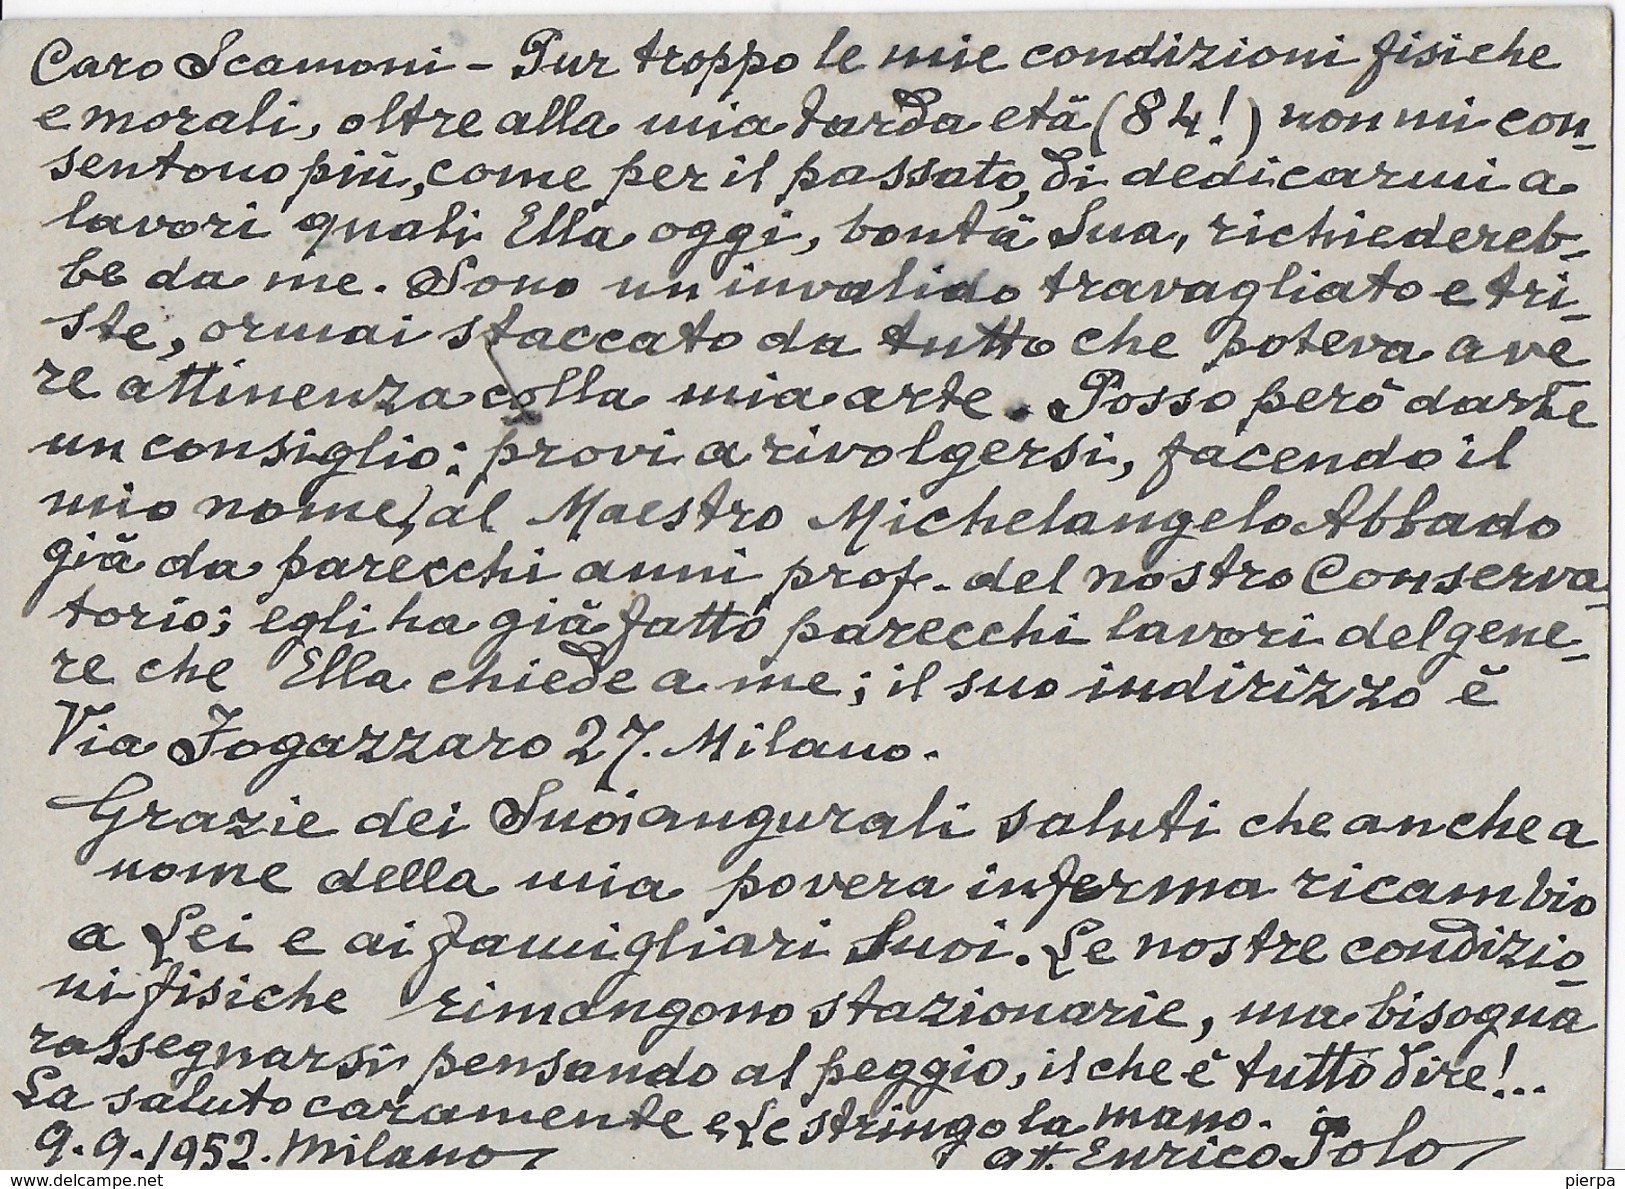 Caro Scamoni - Pur troppo le mie condizioni fisiche
e morali, oltre alla mia tarda età (84!) non mi con-
sentono più, come per il passato, di dedicarmi a
lavori quali Ella oggi, bontà Sua, richiedereb-
be da me. Sono un invalido travagliato e tri-
ste, ormai staccato da tutto che poteva ave
re attinenza colla mia arte. Posso però darle
un consiglio: provi a rivolgersi, facendo il
mio nome, al Maestro Michelangelo Abbado
già da parecchi anni prof. del nostro Conserva-
torio; egli ha già fatto parecchi lavori del gene-
re che Ella chiede a me; il suo indirizzo è
Via Fogazzaro 27. Milano.
Grazie dei Suoi augurali saluti che anche a
nome della mia povera inferma ricambio
a Lei e ai famigliari Suoi. Le nostre condizio-
ni fisiche rimangono stazionarie, ma bisogna
rassegnarsi pensando al peggio, il che è tutto dire!..
La saluto caramente e Le stringo la mano.
9.9.1952. Milano aff. Enrico Polo
delcampe.net
pierpa